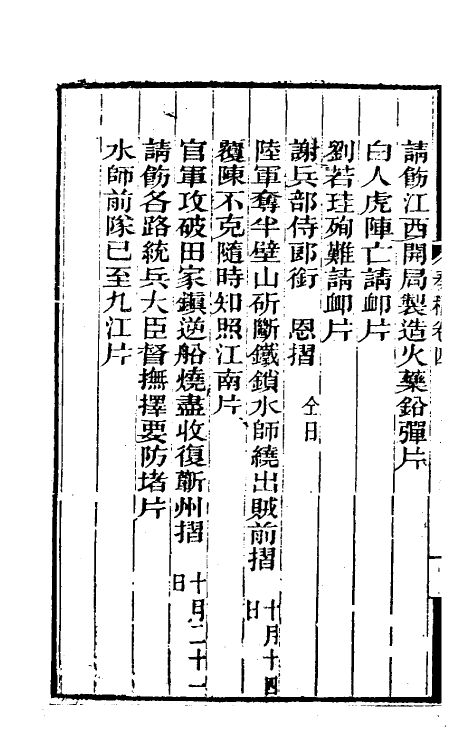 請飭江西開局製造火藥鉛彈片
白人虎陣亡請卹片
劉若珪殉難請卹片
謝兵部侍郎銜　恩摺　仝日
陸軍奪半壁山斫斷鐵鎖水師繞出賊前摺　十月十四日
覆陳不克隨時知照江南片
官軍攻破田家鎮逆船燒盡收復蘄州摺　十月二十一日
請飭各路統兵大臣督撫擇要防堵片
水師前隊已至九江片
奏稿卷四